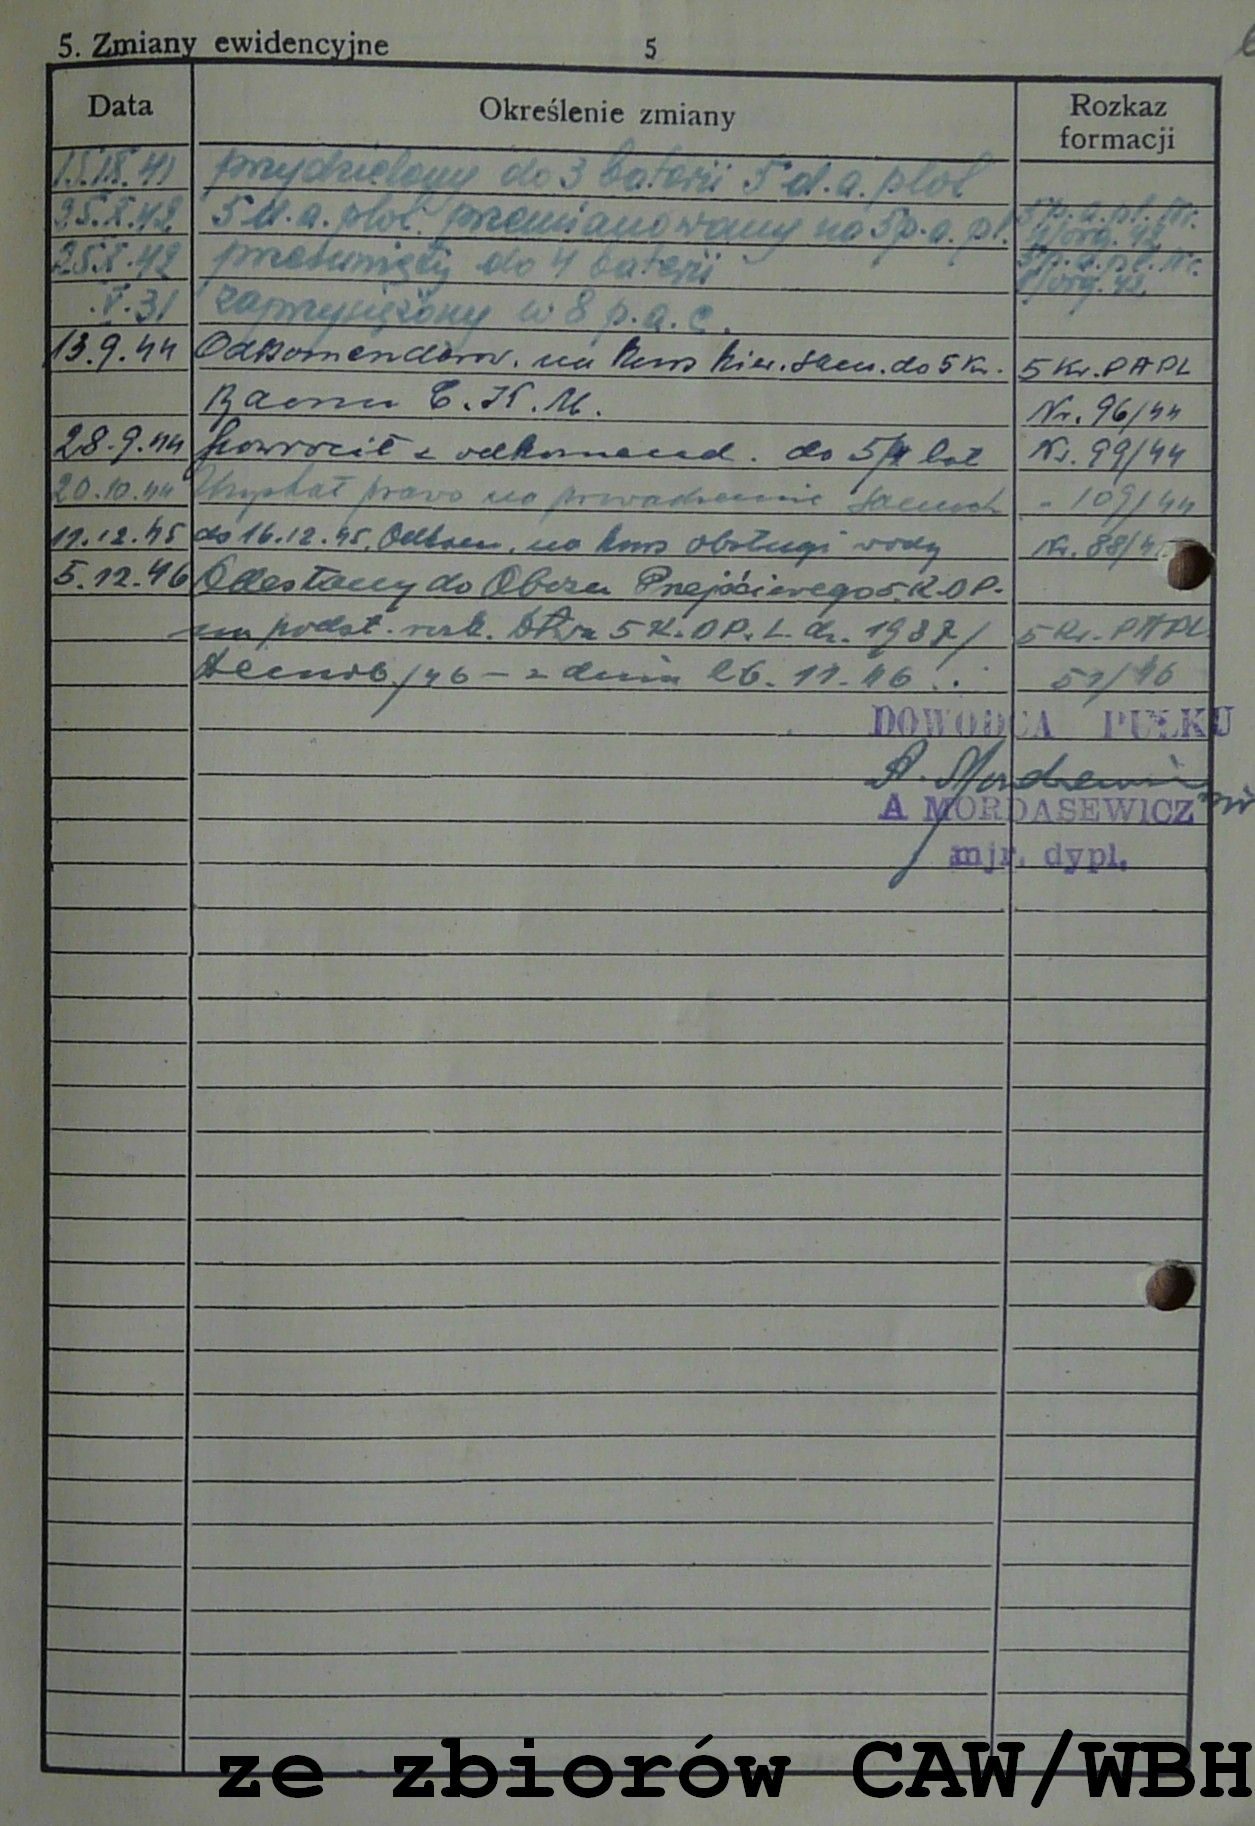 5. Zmiany ewidencyjne 5
Data Określenie zmiany Rozkaz formacji
15.IX.41 przydzielony do 3 baterii 5 d.a.plot
25.X.42 5 d.a.plot. przemianowany na 5 p.a.pl. 5 p.a.pl. Nr. 1/org. 42
25.X.42 przesunięty do 4 baterii 5 p.a.pl. Nr. 1/org. 42
.V.31 zaprzysiężony w 8 p.a.c.
13.9.44 Odkomenderow. na kurs kier. sam. do 5 Kr. 5 Kr. PAPL
Baonu C.K.M. Nr. 96/44
28.9.44 Powrócił z odkomend. do 5/4 bat Nr. 99/44
20.10.44 Uzyskał prawo na prowadzenie samoch - 109/44
11.12.45 do 16.12.45. Odkom. na kurs obsługi wody Nr. 88/4
5.12.46 Odesłany do Obozu Przejściowego 5.K.D.P.
na podst. rozk. D-twa 5 K.D.P. L. dz. 1987/ 5 Kr. PAPL.
/46 - z dnia 26.11.46 . . 51/46
DOWÓDCA PUŁKU
A MORDASEWICZ
mjr. dypl.
ze zbiorów CAW/WBH